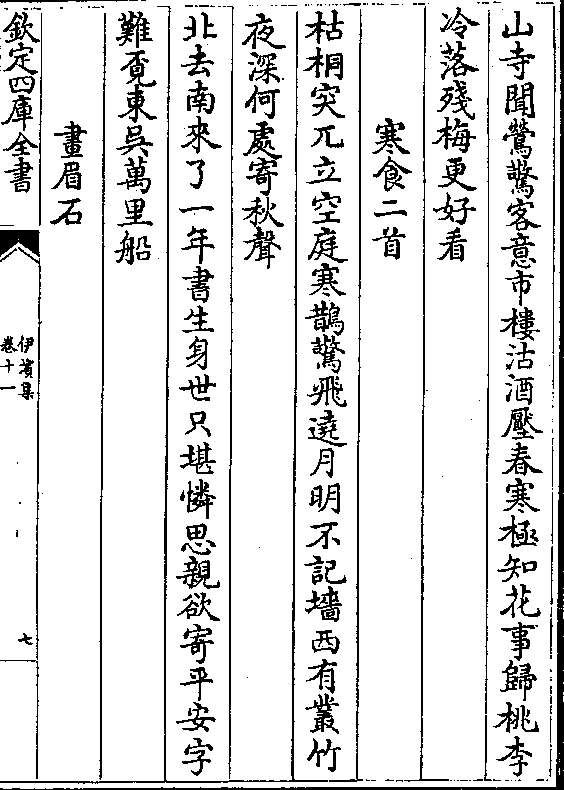 山寺聞鶯驚客意市樓沽酒壓春寒極知花事歸桃李
冷落殘梅更好看
寒食二首
枯桐突兀立空庭寒鵲驚飛遶月明不記墻西有叢竹
夜深何處寄秋聲
北去南來了一年書生身世只堪憐思親欲寄平安字
難覔東吳萬里船
畫眉石
欽定四庫全書
伊濱集
卷十一
七